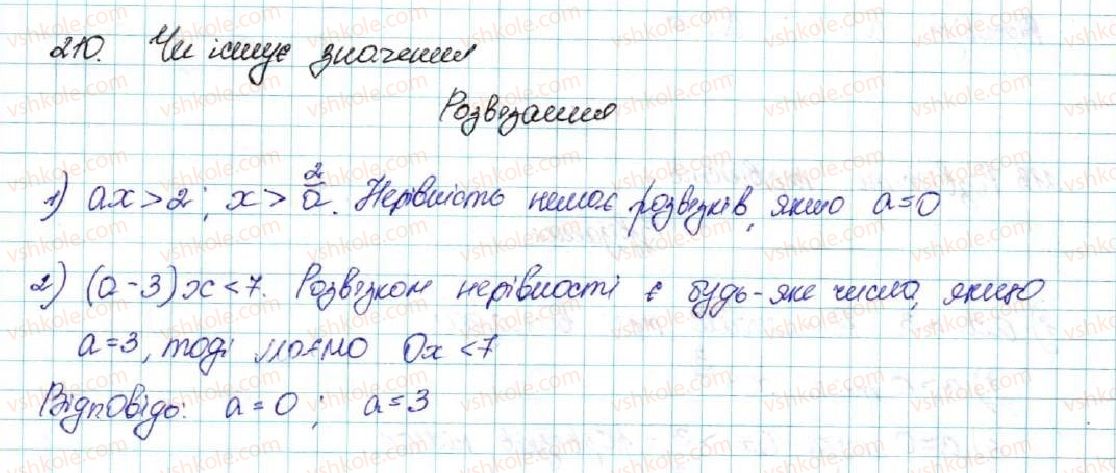 210. Чи існує значення
Розв'язання
1) ax > 2; x > 2/a. Нерівність немає розвязків, якщо a = 0
2) (a - 3)x < 7. Розвязком нерівності є будь-яке число, якщо
a = 3, тоді маємо 0x < 7
Відповідь: a = 0; a = 3